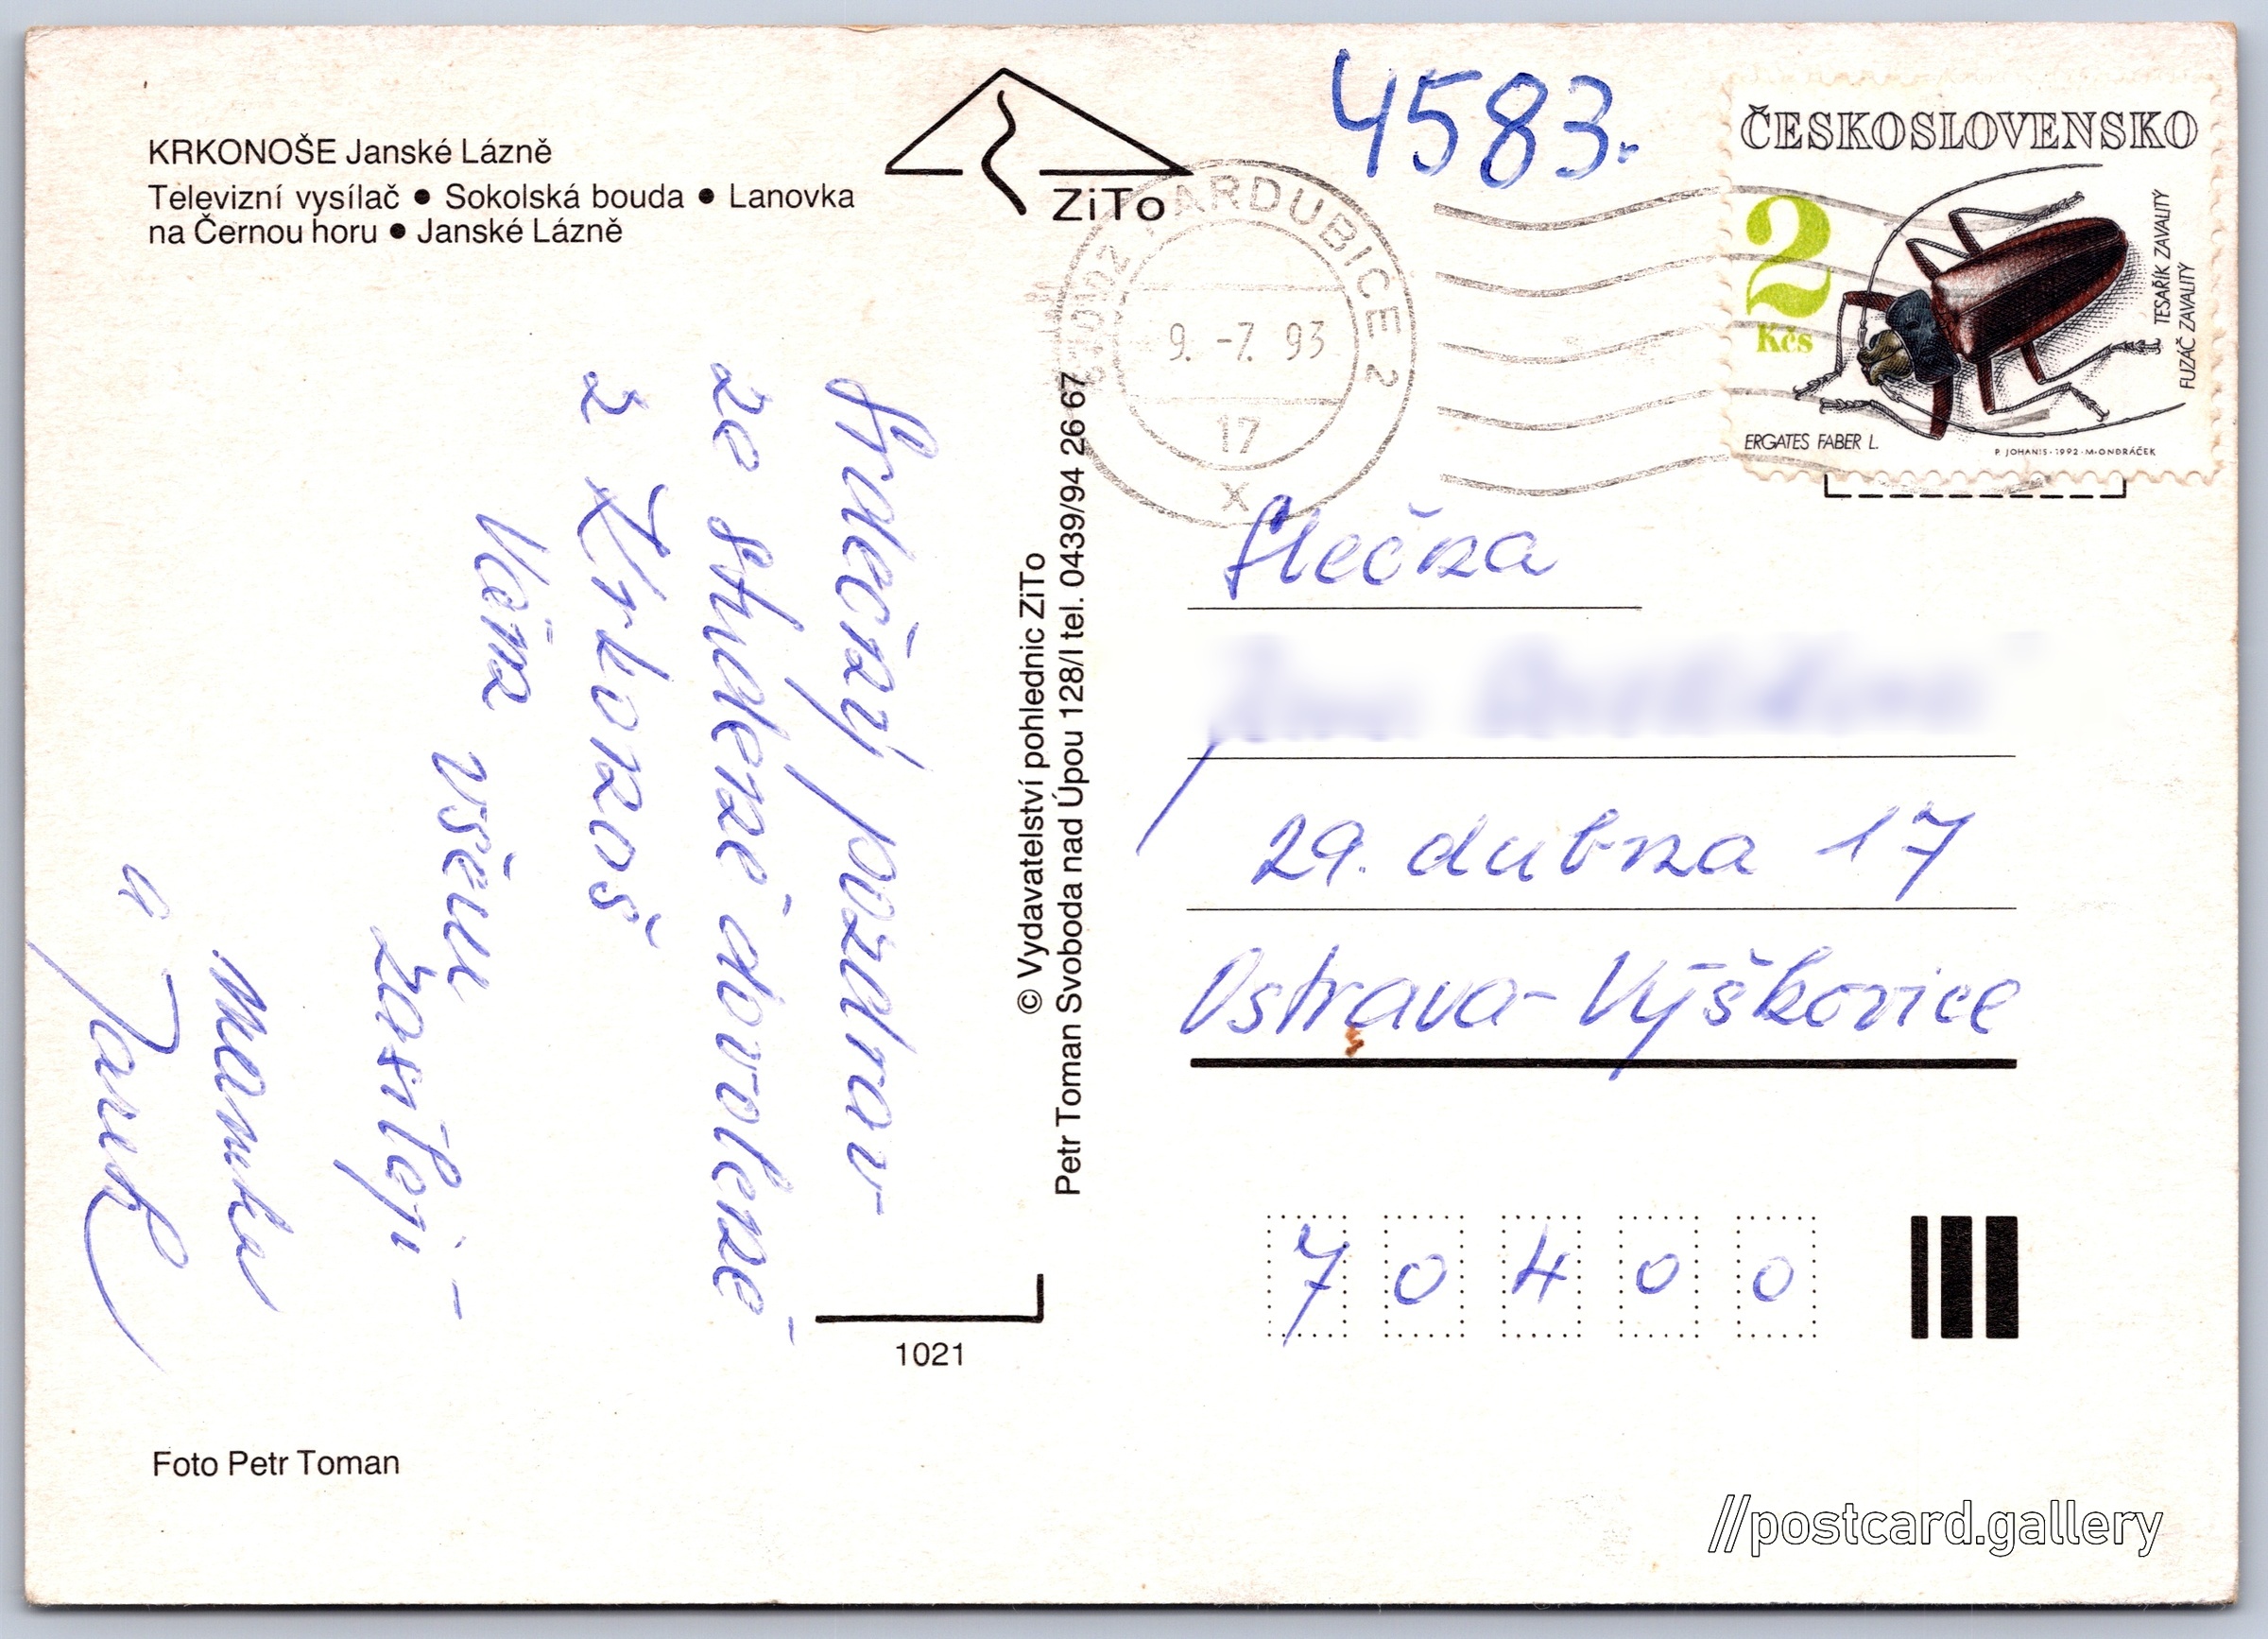 KRKONOŠE Janské Lázně
Televizní vysílač ● Sokolská bouda ● Lanovka
na Černou horu ● Janské Lázně
ZiTo
4583.
ČESKOSLOVENSKO
2
Kčs
TESAŘÍK ZAVALITÝ
FUZÁČ ZAVALITÝ
ERGATES FABER L.
P. JOHANIS · 1992 · M. ONDRÁČEK
PARDUBICE 2
9. -7. 93
17
x
Srdečný pozdrav
ze studené dovolené
z Krkonoš
Vám
všem
zasílají
Mamka
a Jarek
© Vydavatelství pohlednic ZiTo
Petr Toman Svoboda nad Úpou 128/I tel. 0439/94 26 67
Slečna
29. dubna 17
Ostrava-Výškovice
70400
1021
Foto Petr Toman
//postcard.gallery